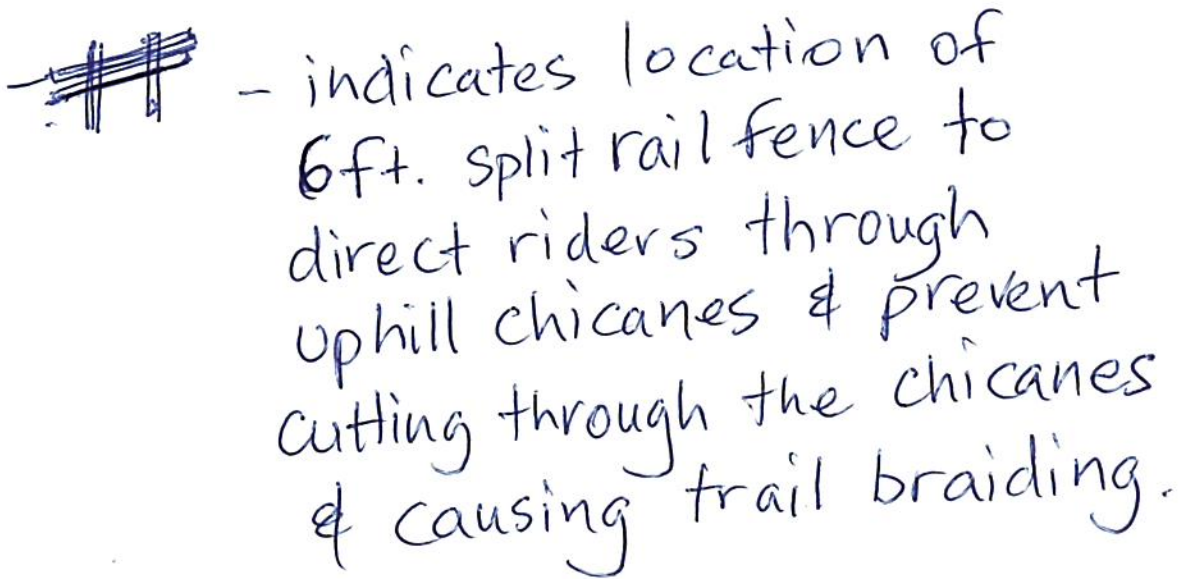 - indicates location of
6ft. split rail fence to
direct riders through
uphill chicanes & prevent
cutting through the chicanes
& causing trail braiding.